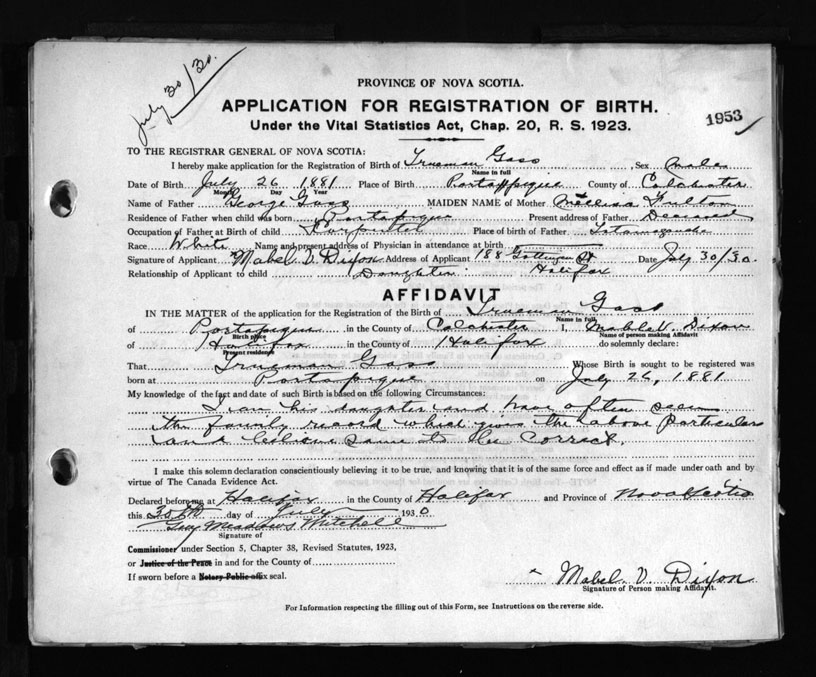 July 30/30.
PROVINCE OF NOVA SCOTIA.
APPLICATION FOR REGISTRATION OF BIRTH.
Under the Vital Statistics Act, Chap. 20, R. S. 1923.
1953
TO THE REGISTRAR GENERAL OF NOVA SCOTIA:
I hereby make application for the Registration of Birth of Trueman Gass Sex Male
Name in full
Date of Birth July 26 1881 Place of Birth Portapique County of Colchester
Month Day Year
Name of Father George Gass MAIDEN NAME of Mother Mellissa Fulton
Residence of Father when child was born Portapique Present address of Father Deceased
Occupation of Father at Birth of child Carpenter Place of birth of Father Tatamagouche
Race White Name and present address of Physician in attendance at birth
Signature of Applicant Mabel V. Dixon Address of Applicant 188 Gottingen St Date July 30/30.
Relationship of Applicant to child Daughter. Halifax
AFFIDAVIT
IN THE MATTER of the application for the Registration of the Birth of Trueman Gass
Name in full
of Portapique in the County of Colchester I, Mable V. Dixon
Birth place Name of person making Affidavit
of Halifax in the County of Halifax do solemnly declare:
Present residence
That Trueman Gass Whose Birth is sought to be registered was
born at Portapique on July 26, 1881
My knowledge of the fact and date of such Birth is based on the following Circumstances:
I am his daughter and have often seen
the family record which gives the above particulars
and believe same to be correct.
I make this solemn declaration conscientiously believing it to be true, and knowing that it is of the same force and effect as if made under oath and by
virtue of The Canada Evidence Act.
Declared before me at Halifax in the County of Halifax and Province of Nova Scotia
this 30th day of July 1930
Guy Meadows Mitchell
Signature of
Commissioner under Section 5, Chapter 38, Revised Statutes, 1923,
or Justice of the Peace in and for the County of
If sworn before a Notary Public affix seal.
Mabel V. Dixon
Signature of Person making Affidavit.
For Information respecting the filling out of this Form, see Instructions on the reverse side.